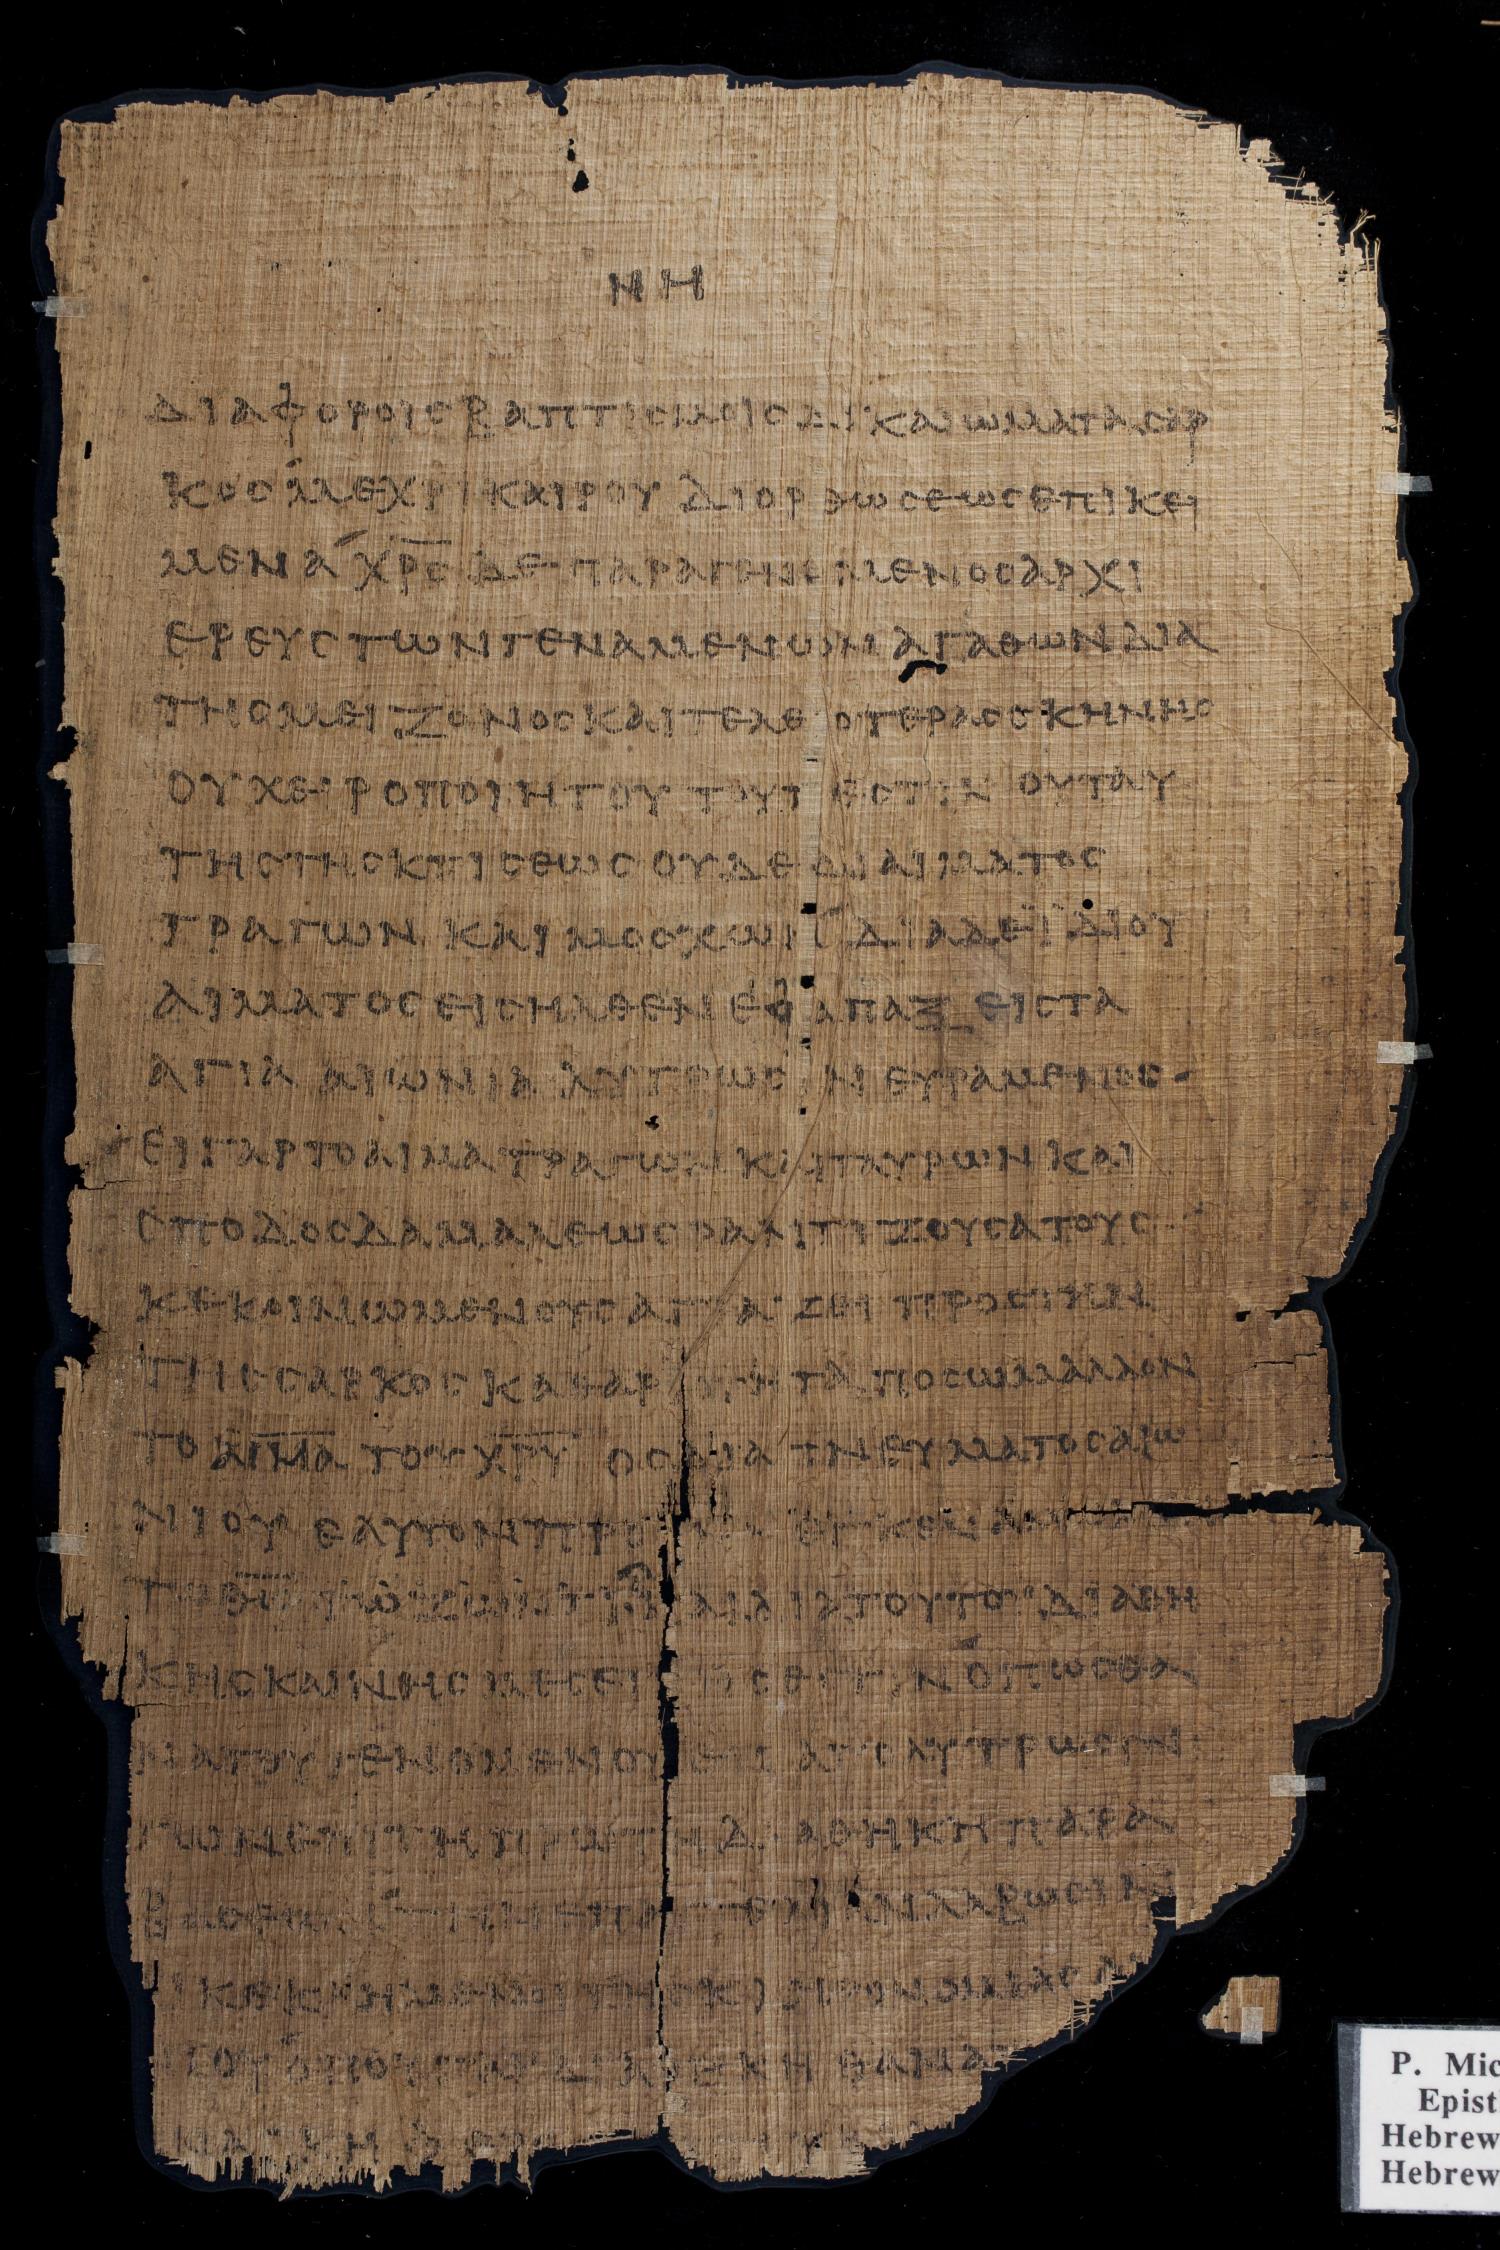 ΝΗ
ΔΙΑΦΟΡΟΙΣ ΒΑΠΤΙΣΜΟΙΣ ΔΙΚΑΙΩΜΑΤΑ ΣΑΡ
ΚΟΣ ΜΕΧΡΙ ΚΑΙΡΟΥ ΔΙΟΡΘΩΣΕΩΣ ΕΠΙΚΕΙ
ΜΕΝΑ ΧΡΣ ΔΕ ΠΑΡΑΓΕΝΟΜΕΝΟΣ ΑΡΧΙ
ΕΡΕΥΣ ΤΩΝ ΓΕΝΑΜΕΝΩΝ ΑΓΑΘΩΝ ΔΙΑ
ΤΗΣ ΜΕΙΖΟΝΟΣ ΚΑΙ ΤΕΛΕΙΟΤΕΡΑΣ ΣΚΗΝΗΣ
ΟΥ ΧΕΙΡΟΠΟΙΗΤΟΥ ΤΟΥΤ ΕΣΤΙΝ ΟΥ ΤΑΥ
ΤΗΣ ΤΗΣ ΚΤΙΣΕΩΣ ΟΥΔΕ ΔΙ ΑΙΜΑΤΟΣ
ΤΡΑΓΩΝ ΚΑΙ ΜΟΣΧΩΝ ΔΙΑ ΔΕ ΪΔΙΟΥ
ΑΙΜΑΤΟΣ ΕΙΣΗΛΘΕΝ ΕΦΑΠΑΞ ΕΙΣ ΤΑ
ΑΓΙΑ ΑΙΩΝΙΑ ΛΥΤΡΩΣΙΝ ΕΥΡΑΜΕΝΟΣ
ΕΙ ΓΑΡ ΤΟ ΑΙΜΑ ΤΡΑΓΩΝ ΚΑΙ ΤΑΥΡΩΝ ΚΑΙ
ΣΠΟΔΟΣ ΔΑΜΑΛΕΩΣ ΡΑΝΤΙΖΟΥΣΑ ΤΟΥΣ
ΚΕΚΟΙΝΩΜΕΝΟΥΣ ΑΓΙΑΖΕΙ ΠΡΟΣ ΤΗΝ
ΤΗΣ ΣΑΡΚΟΣ ΚΑΘΑΡΟΤΗΤΑ ΠΟΣΩ ΜΑΛΛΟΝ
ΤΟ ΑΙΜΑ ΤΟΥ ΧΡΥ ΟΣ ΔΙΑ ΠΝΕΥΜΑΤΟΣ ΑΙΩ
ΝΙΟΥ ΕΑΥΤΟΝ
ΖΩΝΤΙ ΔΙΑ ΤΟΥΤΟ ΔΙΑΘΗ
ΚΗΣ ΚΑΙΝΗΣ ΜΕΣΕΙΤΗΣ ΕΣΤΙΝ ΟΠΩΣ ΘΑ
ΝΑΤΟΥ ΓΕΝΟΜΕΝΟΥ ΕΙΣ ΑΠΟΛΥΤΡΩΣΙΝ
ΤΩΝ ΕΠΙ ΤΗ ΠΡΩΤΗ ΔΙΑΘΗΚΗ ΠΑΡΑ
ΟΠΟΥ ΓΑΡ ΔΙΑΘΗΚΗ
P. Mic
Epist
Hebrew
Hebrew